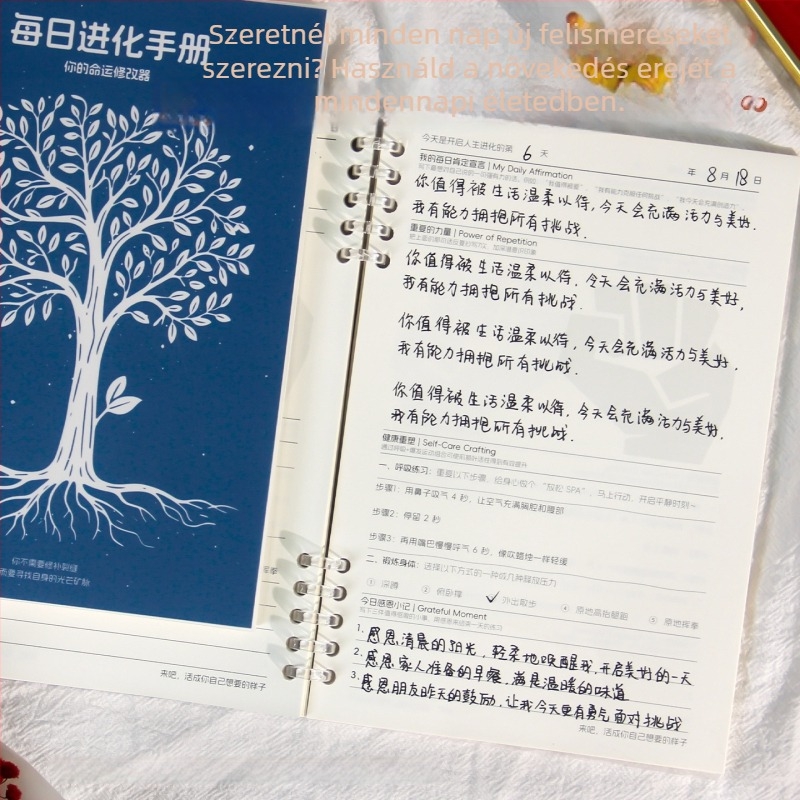 Szeretnél minden nap új felismeréseket
szerezni? Használd a növekedés erejét a
mindennapi életedben.
每日进化手册
你的命运修改器
你不需要修补裂缝
而要寻找自身的光芒矿脉
来吧，活成你自己想要的样子
今天是开启人生进化的第 6 天
年 8 月 18 日
我的每日肯定宣言 | My Daily Affirmation
你值得被生活温柔以待，今天会充满活力与美好.
我有能力拥抱所有挑战.
重复的力量 | Power of Repetition
你值得被生活温柔以待，今天会充满活力与美好，
我有能力拥抱所有挑战.
你值得被生活温柔以待，今天会充满活力与美好.
我有能力拥抱所有挑战.
你值得被生活温柔以待，今天会充满活力与美好.
我有能力拥抱所有挑战.
健康重塑 | Self-Care Crafting
一、呼吸练习：重复以下步骤，给身心做个“放松 SPA”，马上行动，开启平静时刻～
步骤1：用鼻子吸气 4 秒，让空气充满胸腔和腹部
步骤2：停留 2 秒
步骤3：再用嘴巴慢慢呼气 6 秒，像吹蜡烛一样轻缓
二、锻炼身体：选择以下方式的一种或几种释放压力
① 深蹲 ② 俯卧撑 ✓ 外出散步 ④ 原地高抬腿踏 ⑤ 原地挥拳
今日感恩小记 | Grateful Moment
1. 感恩清晨的阳光，轻柔地唤醒我，开启美好的一天
2. 感恩家人准备的早餐，满是温暖的味道
3. 感恩朋友昨天的鼓励，让我今天更有勇气面对挑战
来吧，活成你自己想要的样子